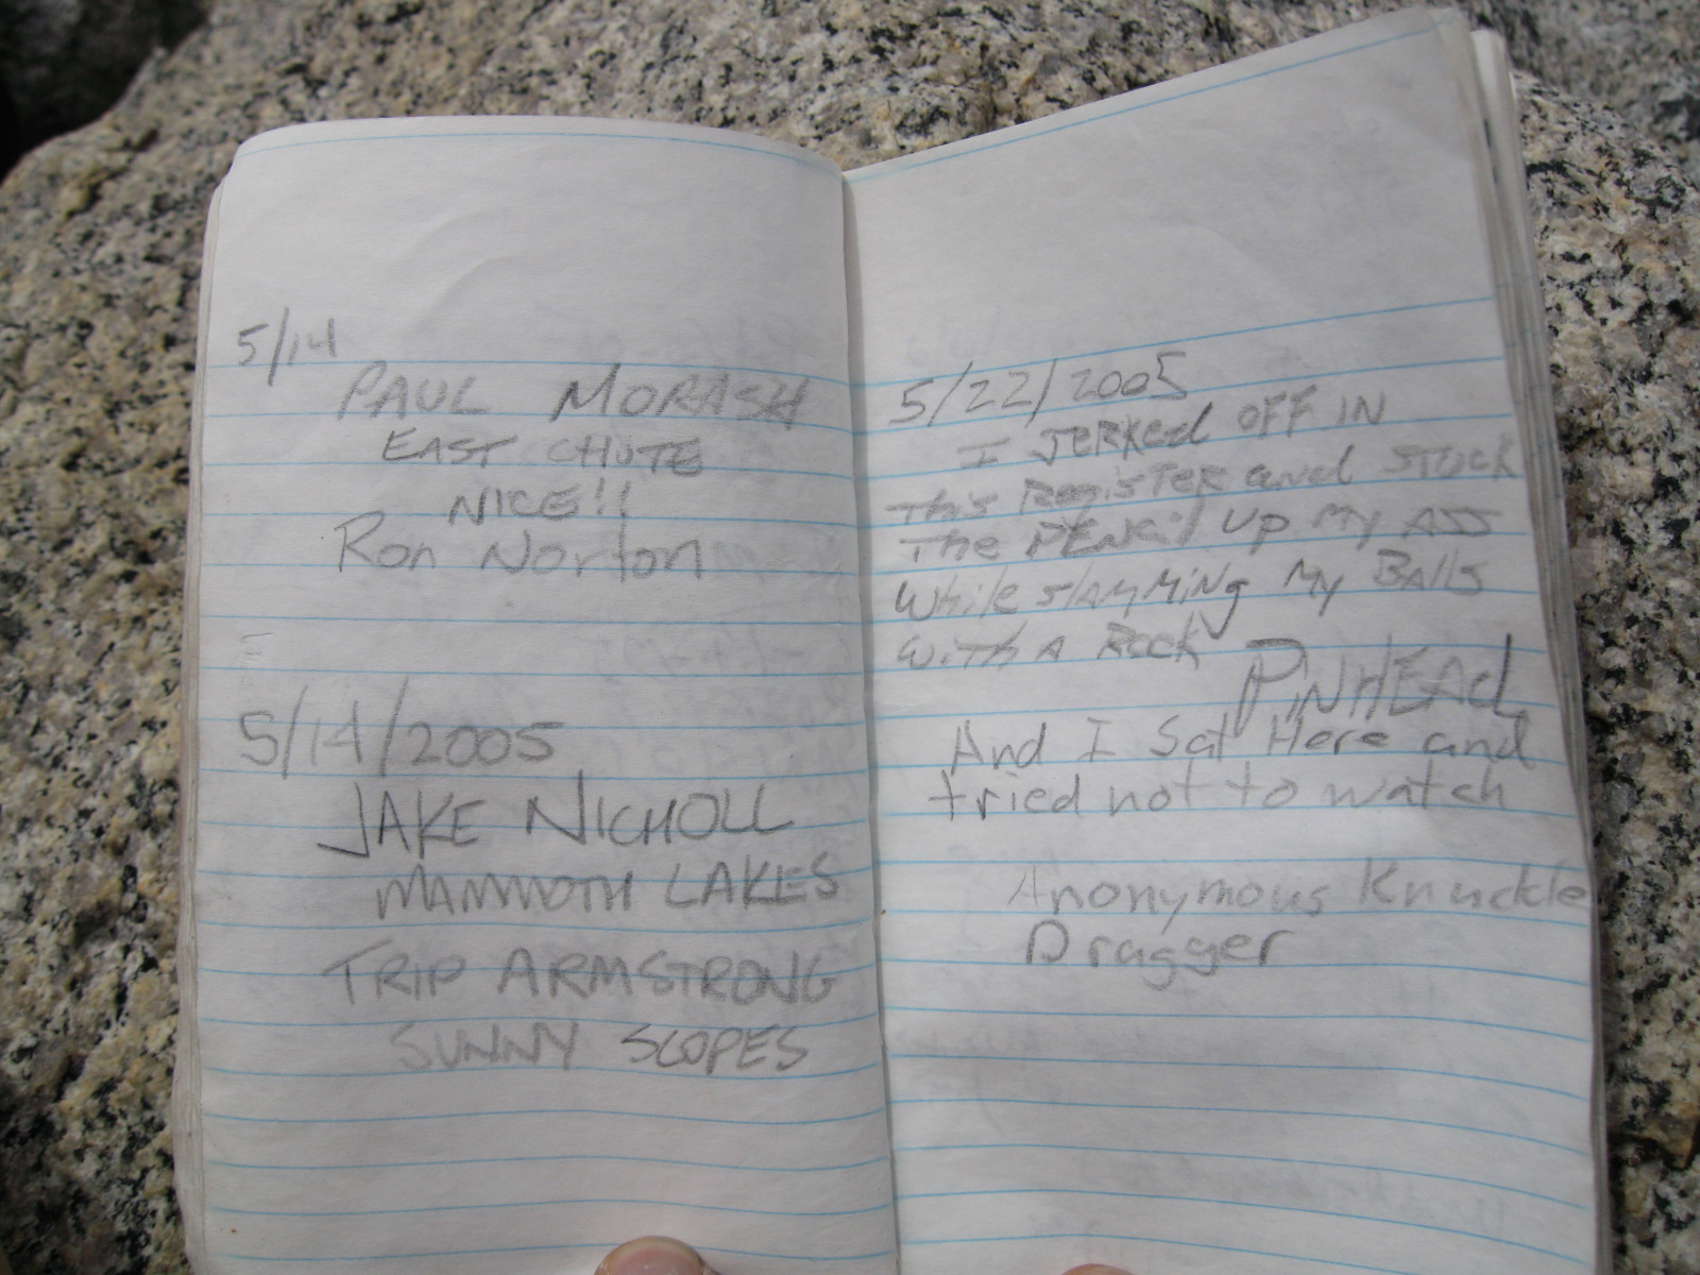 5/14
PAUL MORASH
EAST CHUTE
NICE!!
Ron Norton
5/14/2005
JAKE NICHOLL
MAMMOTH LAKES
TRIP ARMSTRONG
SUNNY SLOPES
5/22/2005
I JERKed OFF IN
This REgisTER and STUCK
The PENCil UP MY ASS
While SlAMMiNg MY BAllS
WiTh A ROCK
PINHEAd
And I Sat Here and
tried not to watch
Anonymous Knuckle
Dragger